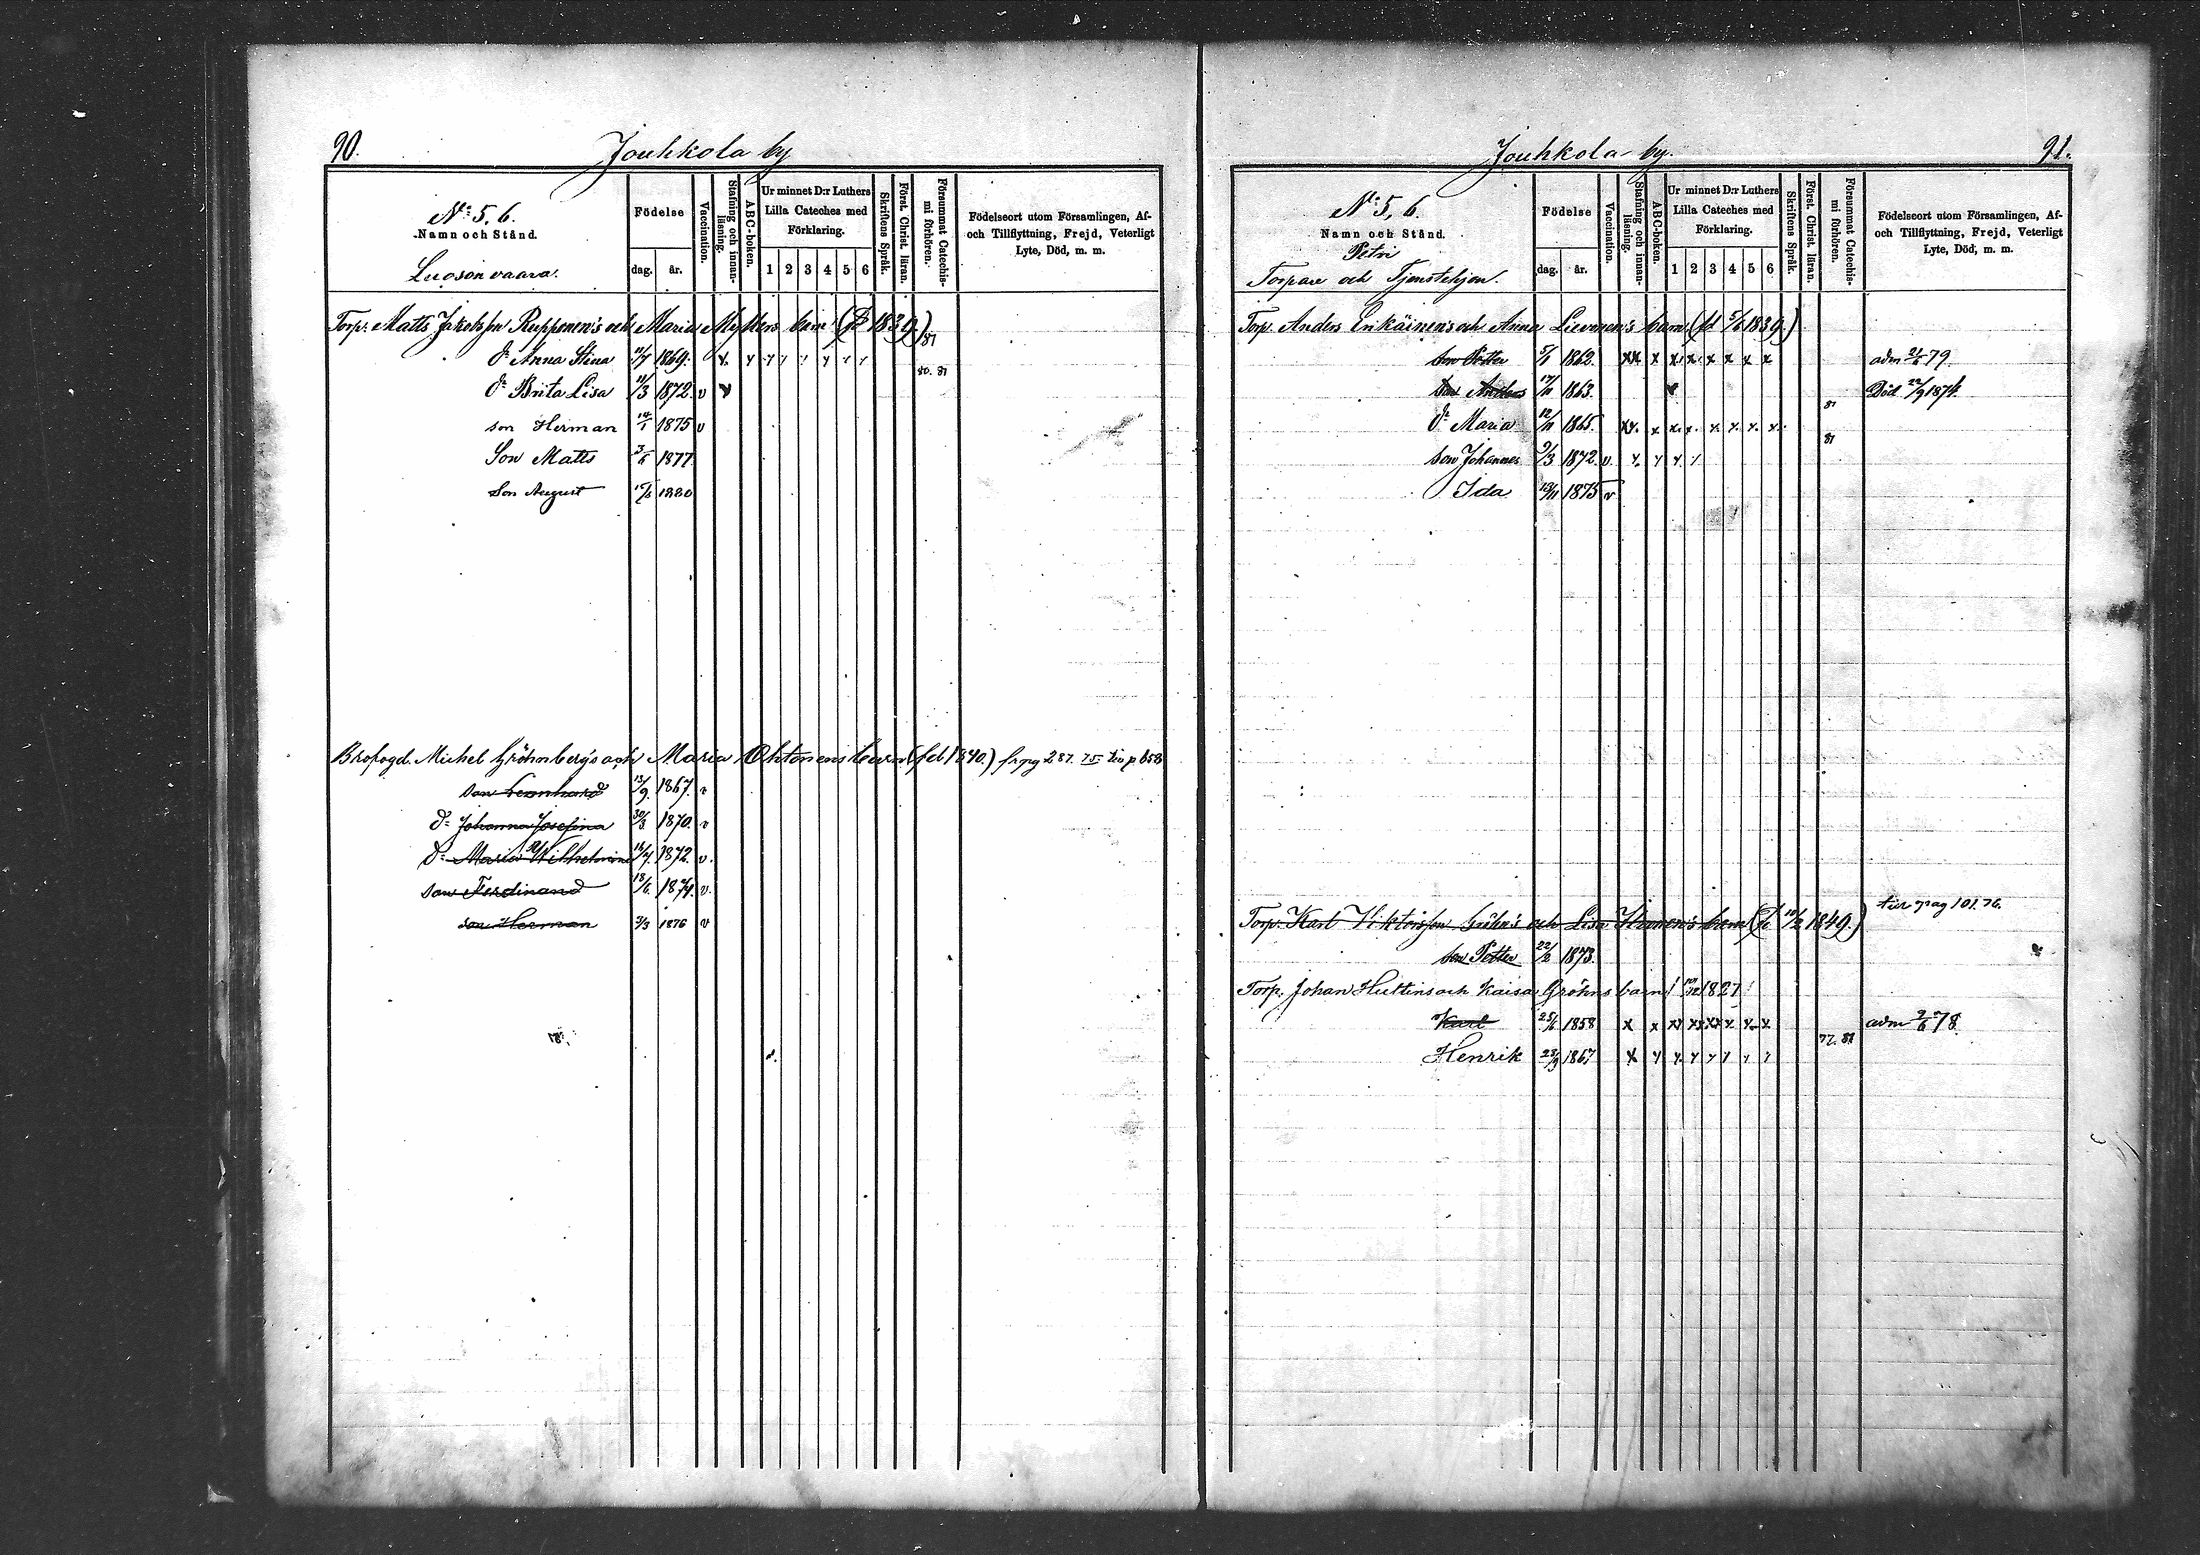 90.
Jouhkola by
N:o 5, 6.
Namn och Stånd.
Luosonvaara.
Födelse
dag.
år.
Vaccination.
Stafning och innan-
läsning.
ABC-boken.
Ur minnet D:r Luthers
Lilla Cateches med
Förklaring.
1 2 3 4 5 6
Skriftens Språk.
Först. Christ. läran.
Försummat Catechis-
mi förhören.
Födelseort utom Församlingen, Af-
och Tillflyttning, Frejd, Veterligt
Lyte, Död, m. m.
Torp. Matts Jakobsson Rupponen's och Maria barn (fd 1839.)
81
dr Anna Stina 11/7 1869. x x x x x x x x
80. 81
dr Brita Lisa 11/3 1872 v
son Herman 14/1 1875 v
Son Matts 3/6 1877
Son August 1880
Brofogd. Michel Gröhnberg's och Maria Ohtonens barn (fd 1840.) fr pag 287. 75 till p 658
son Leonhard 13/9. 1867. v
dr Johanna Josefina 30/3 1870. v
dr Maria Wilhelmina 16/7 1872. v.
son Ferdinand 18/6. 1874. v.
son Herman 3/3 1876 v
91.
Jouhkola by.
N:o 5, 6.
Namn och Stånd.
Petri
Torpare och Tjenstehjon.
Födelse
dag.
år.
Vaccination.
Stafning och innan-
läsning.
ABC-boken.
Ur minnet D:r Luthers
Lilla Cateches med
Förklaring.
1 2 3 4 5 6
Skriftens Språk.
Först. Christ. läran.
Försummat Catechis-
mi förhören.
Födelseort utom Församlingen, Af-
och Tillflyttning, Frejd, Veterligt
Lyte, Död, m. m.
Torp. Anders Erikäinen's och Anna barn (fd 5/6 1839.)
son Petter 5/1 1862. xx x x x x x x x adm 79.
son Anders 1863. Död 22/9 1874.
81
dr Maria 12/11 1865. xx. x x. x. x. x. x. x.
81
son Johannes 9/3 1872. v. x. x x x
Ida 1875 v
till pag 101. 76.
Torp. Karl Viktorsson Gröhn's och Lisa barn (fd 10/2 1849.)
son Petter 22/2 1873.
Torp. Johan Huttins och Kaisa Gröhns barn 1827
Karl 25/6 1858 x x xx xx xx x x x adm 2/6 78.
77. 81
Henrik 23/9 1867 x x x x x x x x